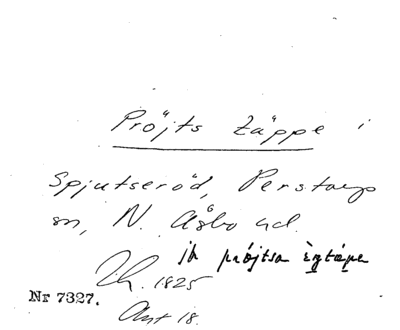 Pröjts täppe i
Spjutseröd, Perstorps
sn, N. Åsbo hd.
prö̀jtsa
1825
Nr 7327.
Ant 18.